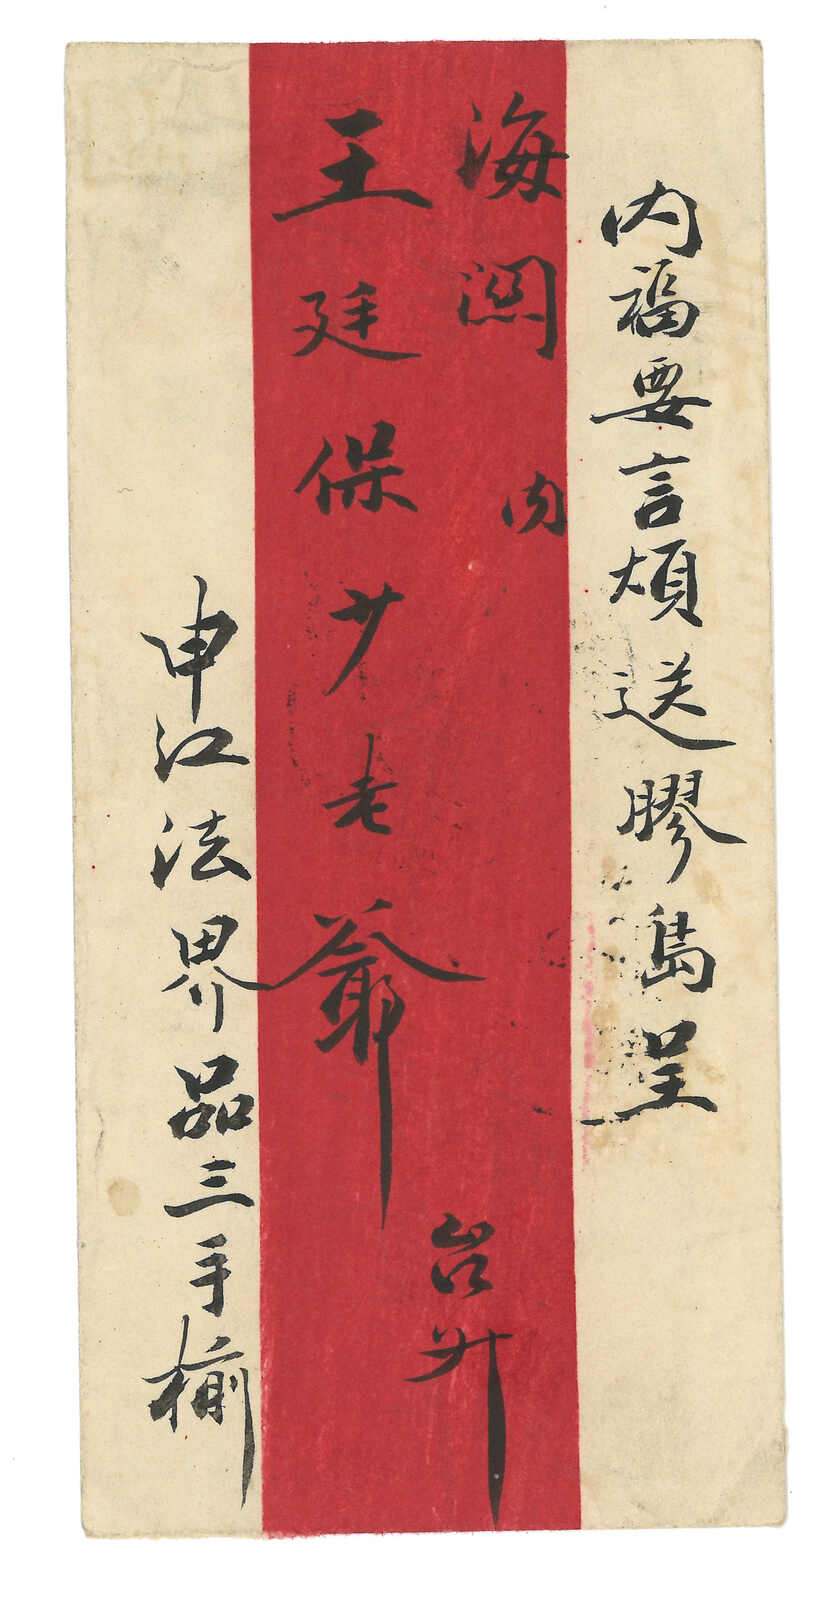 内福要言煩送膠島呈
海関内
王廷保少老爺
台升
申江法界品三手椷